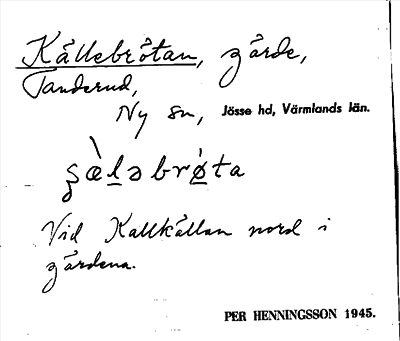 Källebråtan, gärde,
Tanderud,
Ny sn, Jösse hd, Värmlands län.
Vid Kallkällan nord i
gärdena.
PER HENNINGSSON 1945.